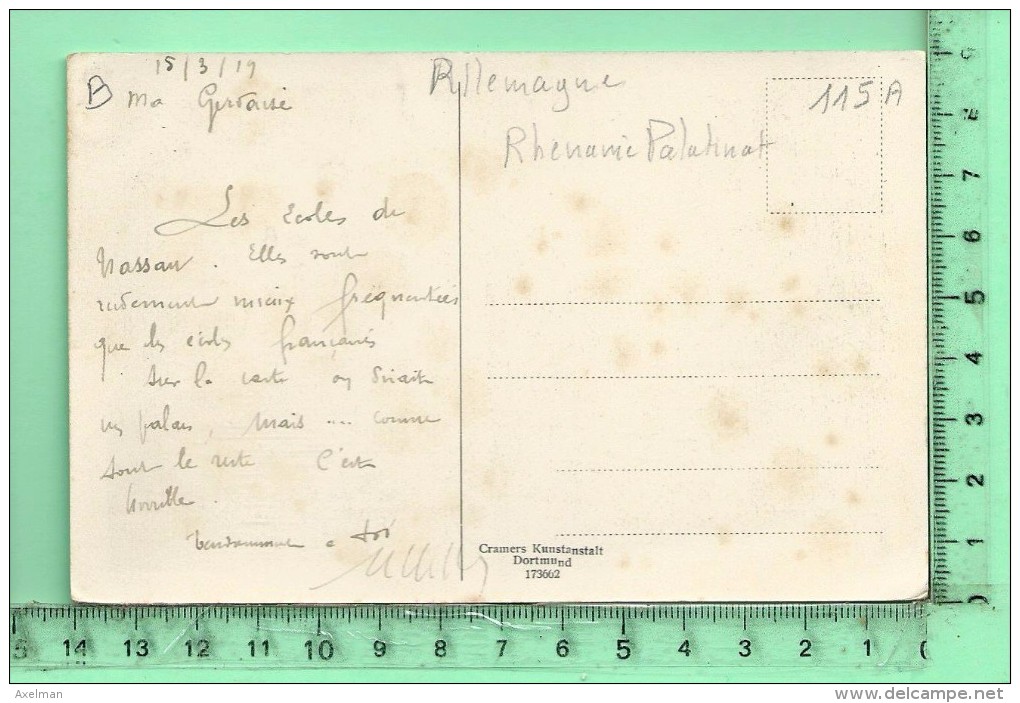 15/3/19
B
Ma Gervaise
Les écoles de
Nassau. Elles sont
rudement mieux fréquentées
que les écoles françaises
Sur la carte on dirait
un palais, mais ... comme
tout le reste c'est
horrible.
Tendrement à toi
Allemagne
Rhenanie Palatinat
115A
Cramers Kunstanstalt
Dortmund
173662
9
8
7
6
5
4
3
2
1
0
15 14 13 12 11 10 9 8 7 6 5 4 3 2 1 0
Axelman
http://www.delcampe.net